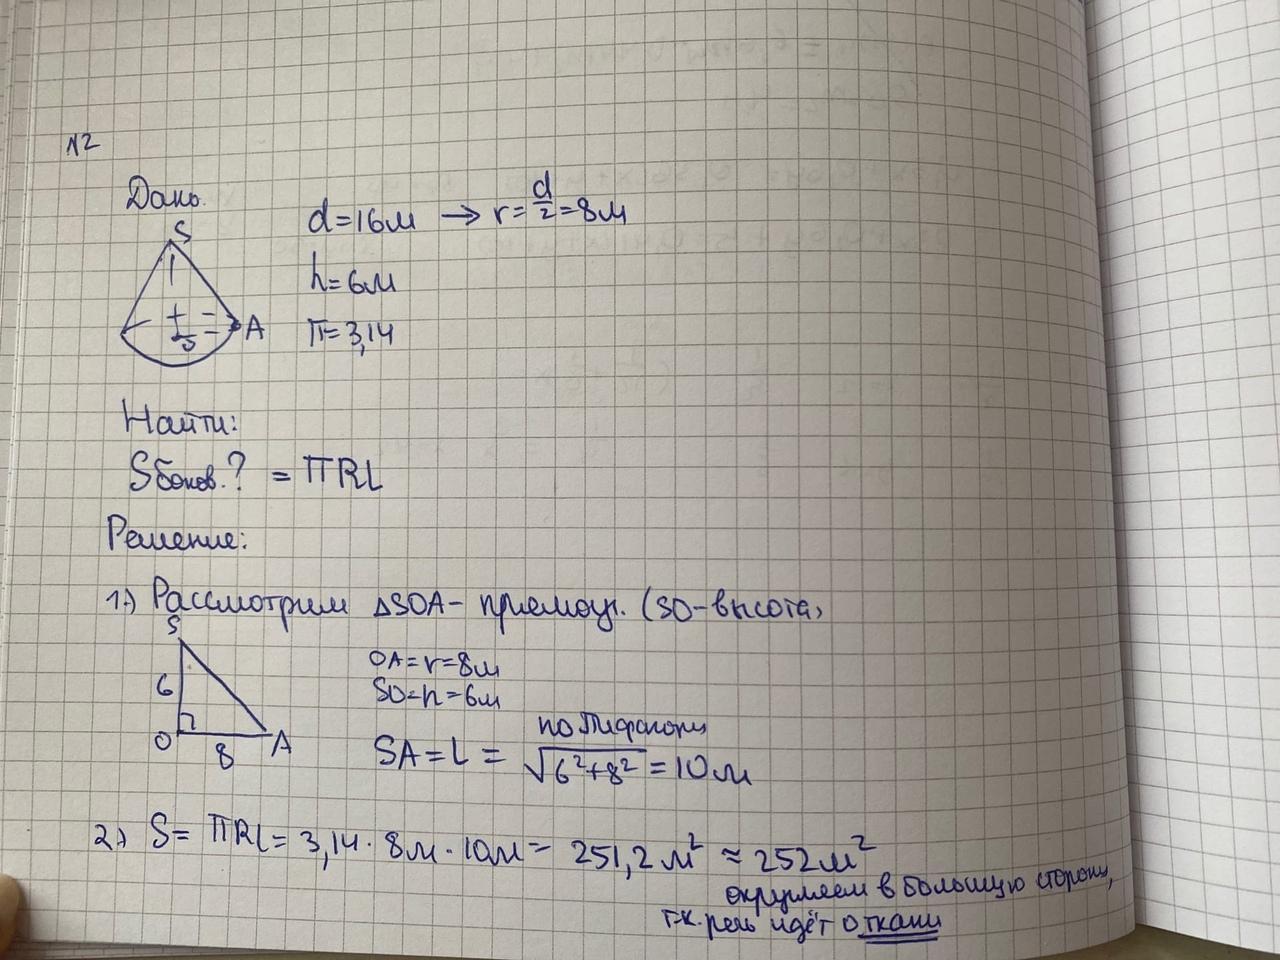 N2
Дано.
d=16м → r=d/2=8м
S
h=6м
О A
π=3,14
Найти:
Sбоков.? = πRL
Решение:
1.) Рассмотрим △SOA- прямоуг. (SO-высота)
S
OA=r=8м
6
SO=h=6м
по Пифагору
O 8 A
SA=L= √6²+8² =10м
2.) S= πRL= 3,14·8м·10м= 251,2м² ≈252м²
округляем в большую сторону,
т.к. речь идёт о ткани